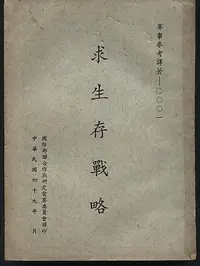 軍事參考譯著—〇〇〇一
求生存戰略
國防部聯合作戰研究督察委員會譯印
中華民國四十九年 月